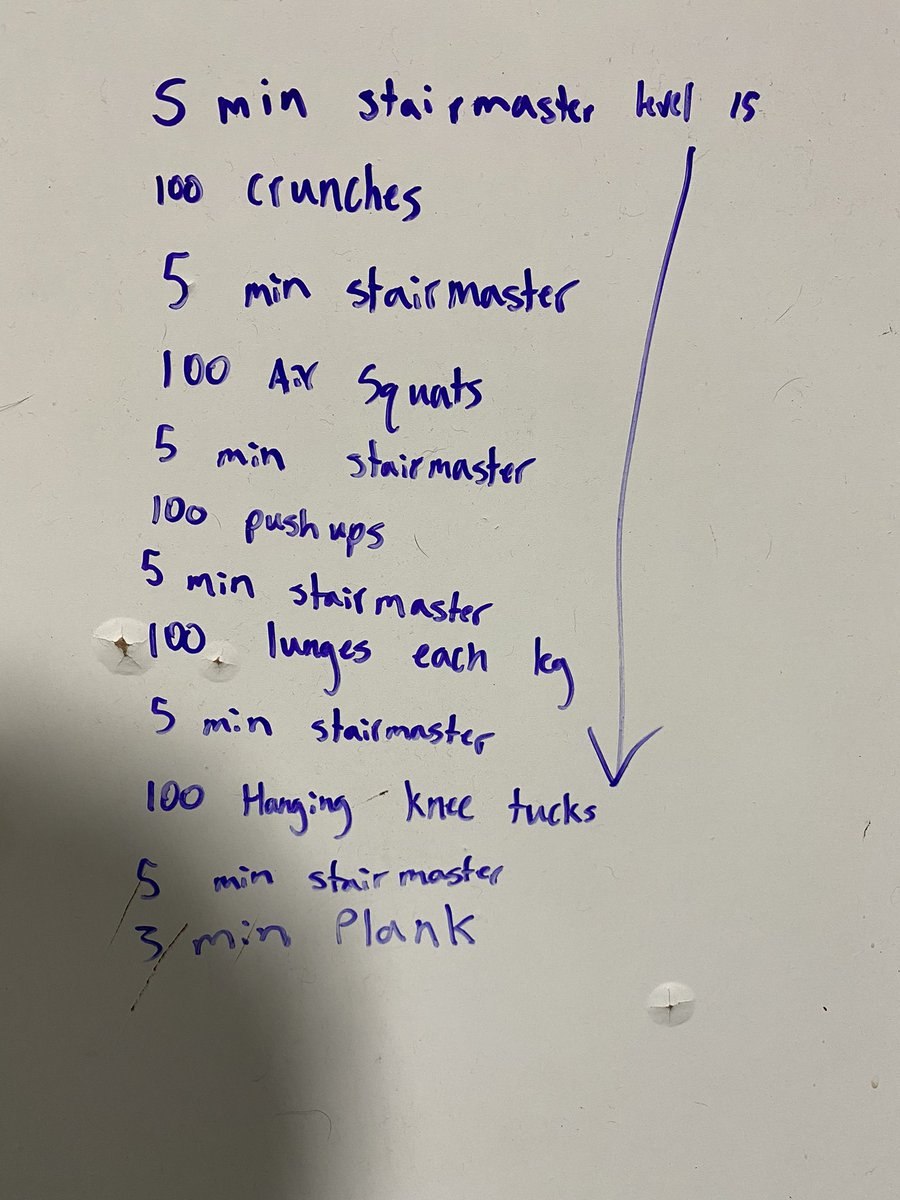 5 min stairmaster level 15
100 crunches
5 min stairmaster
100 Air Squats
5 min stairmaster
100 push ups
5 min stairmaster
100 lunges each leg
5 min stairmaster
100 Hanging knee tucks
5 min stairmaster
3 min Plank